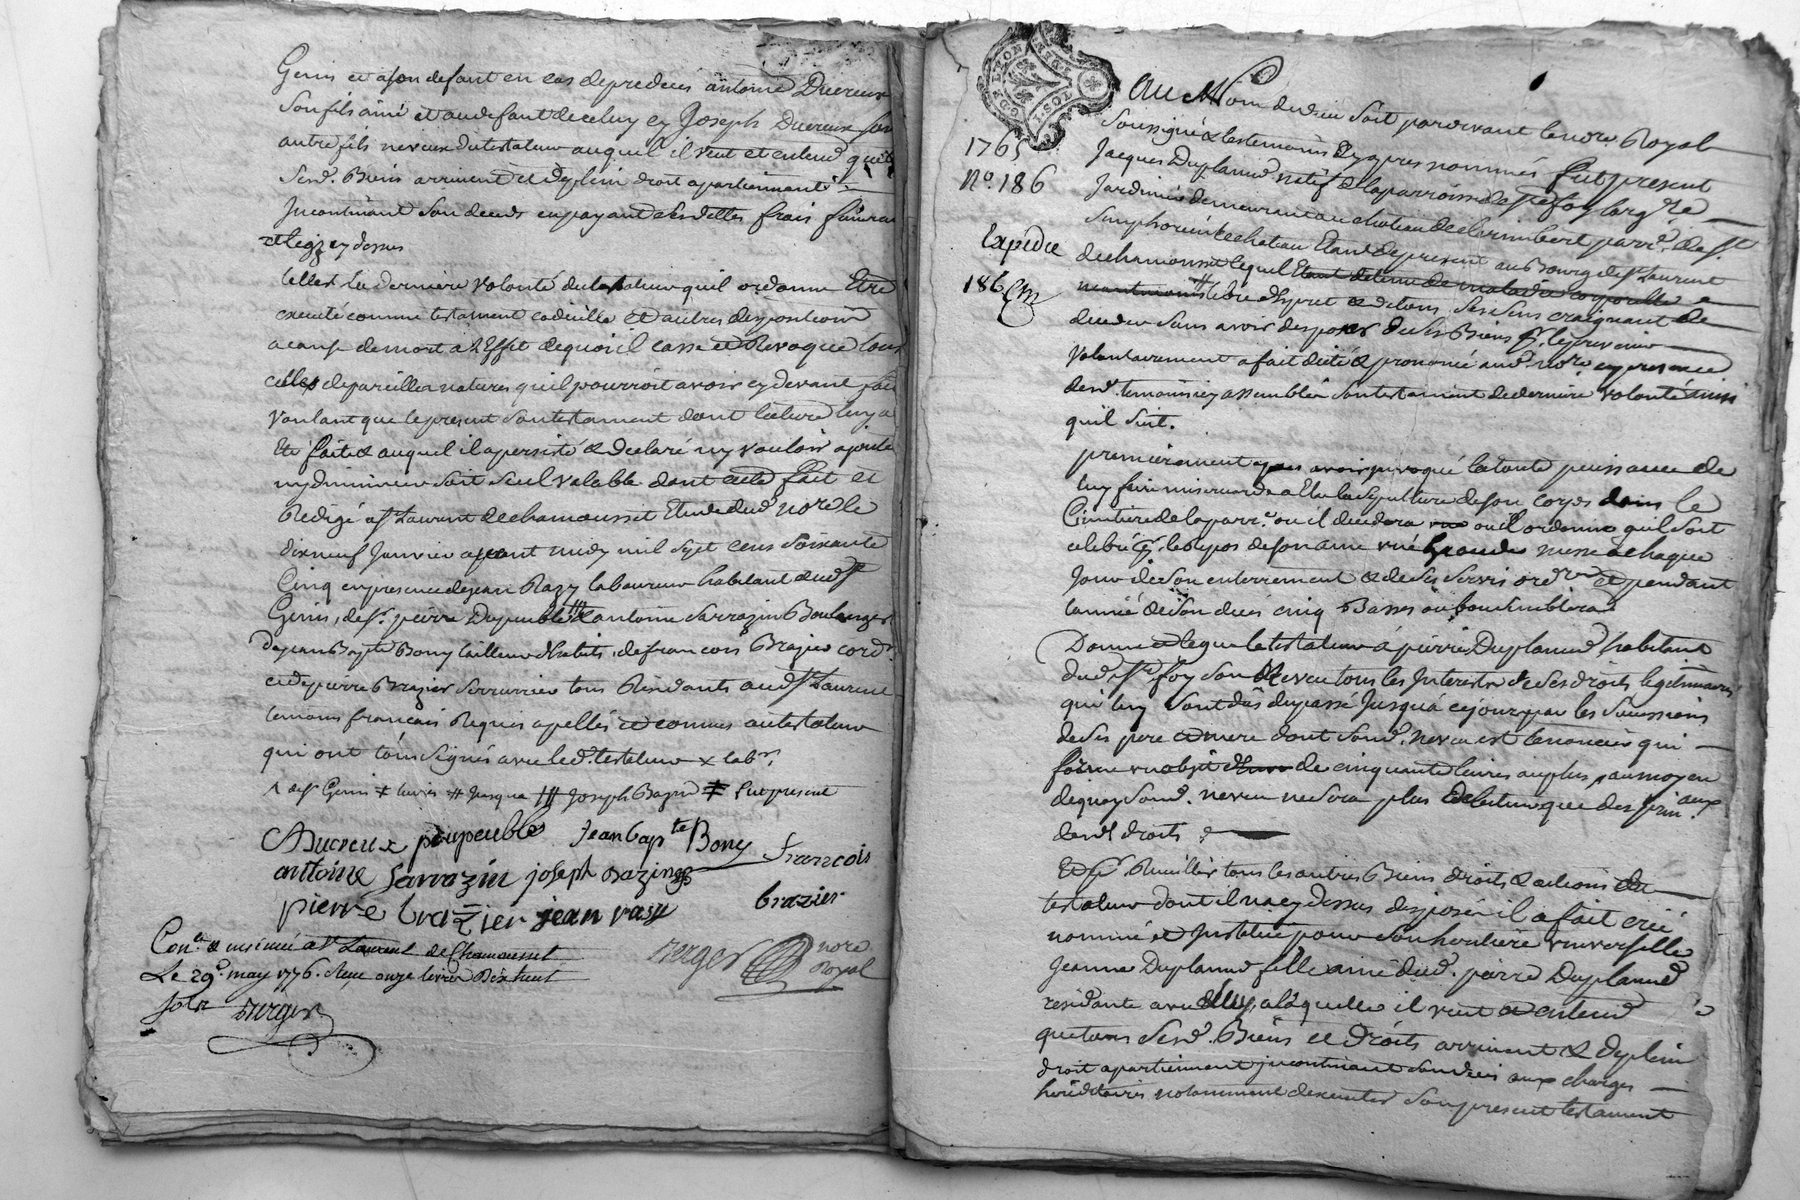 Genis et a son defaut en cas de predeces antoine Ducreux
son fils ainé et au defaut de celuy cy Joseph Ducreux son
autre fils neveux du testateur auquel il veut et entend que
sesd. Biens arrivent et de plein droit apartiennent
Incontinant son deceds en payant ses dettes frais funeraux
et legs cy dessus
telle est la derniere volonté du testateur quil ordonne Etre
executé comme testament codicille et autres disposition
a cause de mort a l'Effet de quoi il casse et Revoque tous
celles de pareilles natures quil pourroit avoir cy devant fait
voulant que le present son testament dont lecture luy a
Eté faite & auquel il a persisté & declaré ny vouloir ajouter
ny diminuer soit seul valable dont acte fait et
Redigé a St Laurent de chamousset Etude dud. nore le
dixneuf Janvier avant midy mil sept cens soixante
Cinq en presence de jean Razy laboureur habitant aud. St
Genis, de sr. pierre Dupeuble antoine Sarrazin Boulanger
de jean Bapte Bony tailleur d'habits, de francois Brazier cordr.
et de pierre Brazier serrurrier tous Residants aud. St Laurent
temoins francois Requis apellés et connus au testateur
qui ont tous signés avec led. testateur x labr.
de St Genis # livres # jusqua # Joseph Bazin # fut present
Ducreux Dupeuble Jean bapte Bony
francois
antoine Sarrazin joseph Bazin
brazier
pierre brazier jean rasy
Berger nore Royal
Conlé & insinué a St Laurent de Chamousset
Le 29e. may 1776. Reçu onze livres
Berger
G DE LYON
1765
No. 186
Expedié
186
Au Nom de dieu soit pardevant le nore Royal
soussigné & les temoins cy apres nommés fut present
Jacques Duplamet natif de la parroisse de Ste foy largre
Jardinier demeurant au chateau de clerimbert parr. de St.
Simphorien le chateau Etant de present au Bourg de St Laurent
de chamousset lequel Etant detenu de maladie corporelle
neantmoins libre d'esprit & de tous ses sens craignant de
deceder sans avoir disposer de ses Biens pr. le prevenir
volontairement a fait dicté & prononcé aud. nore. en presence
desd. temoins cy assemblés son testament de derniere volonté ainsi
quil suit.
premierement apres avoir invoqué la toute puissance de
luy faire misericorde a Elu la sepulture de son corps dans le
Cimetiere de la parr. ou il decedera ou il ordonne quil soit
celebré pr. le repos de son ame une grande messe a chaque
jour de son enterrement & de ses servis ordres et pendant
l'année de son deces cinq Basses ou bon semblera
Donne et legue le testateur a pierre Duplamet habitant
dud. Ste foy son Neveu tous les Interets de ses droits legitimaires
qui luy sont dus du passé jusqu'a ce jour par les successions
de ses pere et mere dont sond. neveu est tenancier qui
forme un objet de cinquante livres au plus, au moyen
de quoy sond. neveu ne sera plus debiteur que des prin.aux
desd. droits
Et pr. Recuillir tous les autres Biens droits & actions du
testateur dont il na cy dessus disposer il a fait créé
nommé et Institue pour son heritiere universelle
Jeanne Duplamet fille ainé dud. pierre Duplamet
residante avec luy, a laquelle il veut & entend
que tous sesd. Biens et droits arrivent & de plein
droit apartiennent incontinant son deces aux charges
hereditaires notamment d'executer son present testament